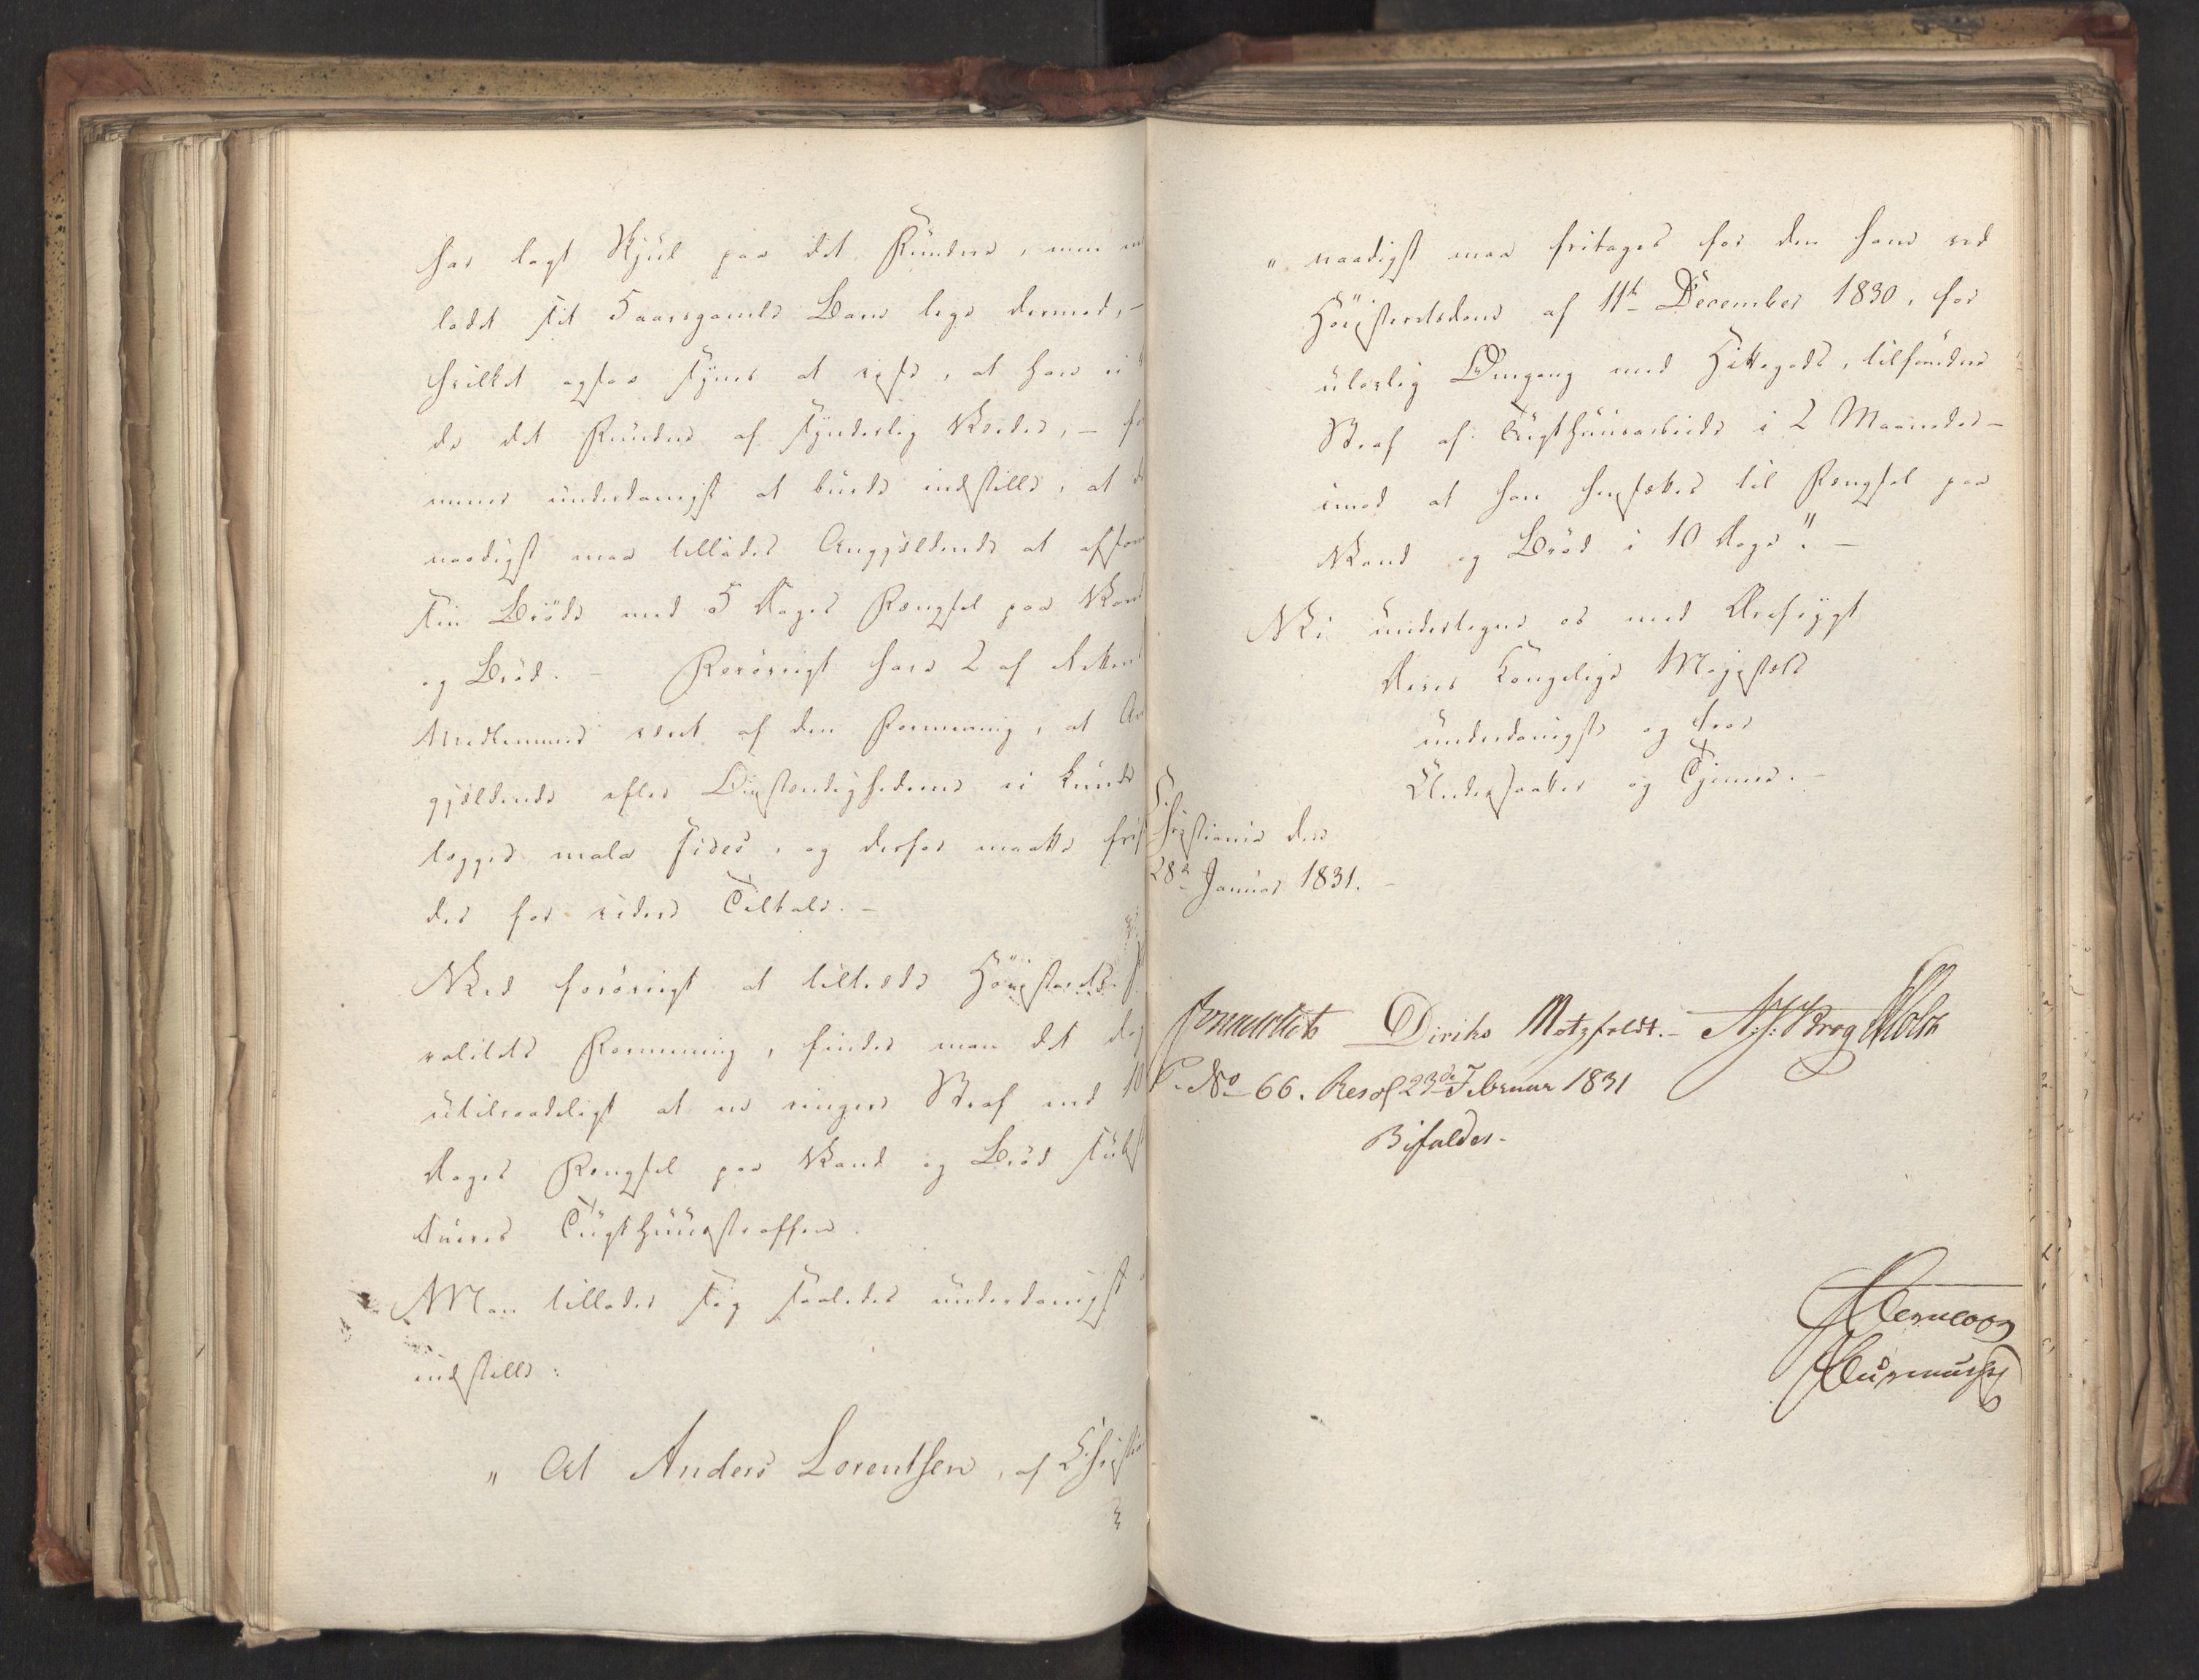 har lagt Skjul paa det Fundne, men
ladet sit 5 aarsgamle Barn lege dermed, –
hvilket ogsaa synes at vise, at han ei
de det Fundne af synderlig Værdie, –
menes underdanigst at burde indstilles, at
naadigst maa tillades Angjeldende at afsone
sin Brøde med 5 Dages Fængsel paa Vand
og Brød. – Forøvrigt have 2 af Rettens
Medlemmer været af den Formening, at An
gjeldende efter Omstændighederne ei kunde
lægges mala fides, og derfor maatte frifin
des for videre Tiltale. –
Ved forøvrigt at tiltræde Høiesterets
valitets Formening, finder man det dog
utilraadeligt at en ringere Straf end 10
Dages Fængsel paa Vand og Brød subst
tueres Tugthuusstraffen.
Man tillader sig saaledes underdanigst
indstille:
„ At Anders Lorentsen, af Christia
3
„ naadigst maa fritages for den ham ved
Høiesteretsdom af 11te December 1830, for
ulovlig Omgang med Hittegods, tilfundne
Straf af Tugthuusarbeide i 2 Maaneder –
imod at han hensættes til Fængsel paa
Vand og Brød i 10 Dage." –
Vi undertegne os med Ærefrygt
Deres Kongelige Majestæts
underdanigste og troe
Undersaatter og Tjenere. –
Christiania den
28de Januar 1831. –
Diriks Motzfeldt. – Krog Holst
No 66. Resol 23de Februar 1831
Bifaldes –